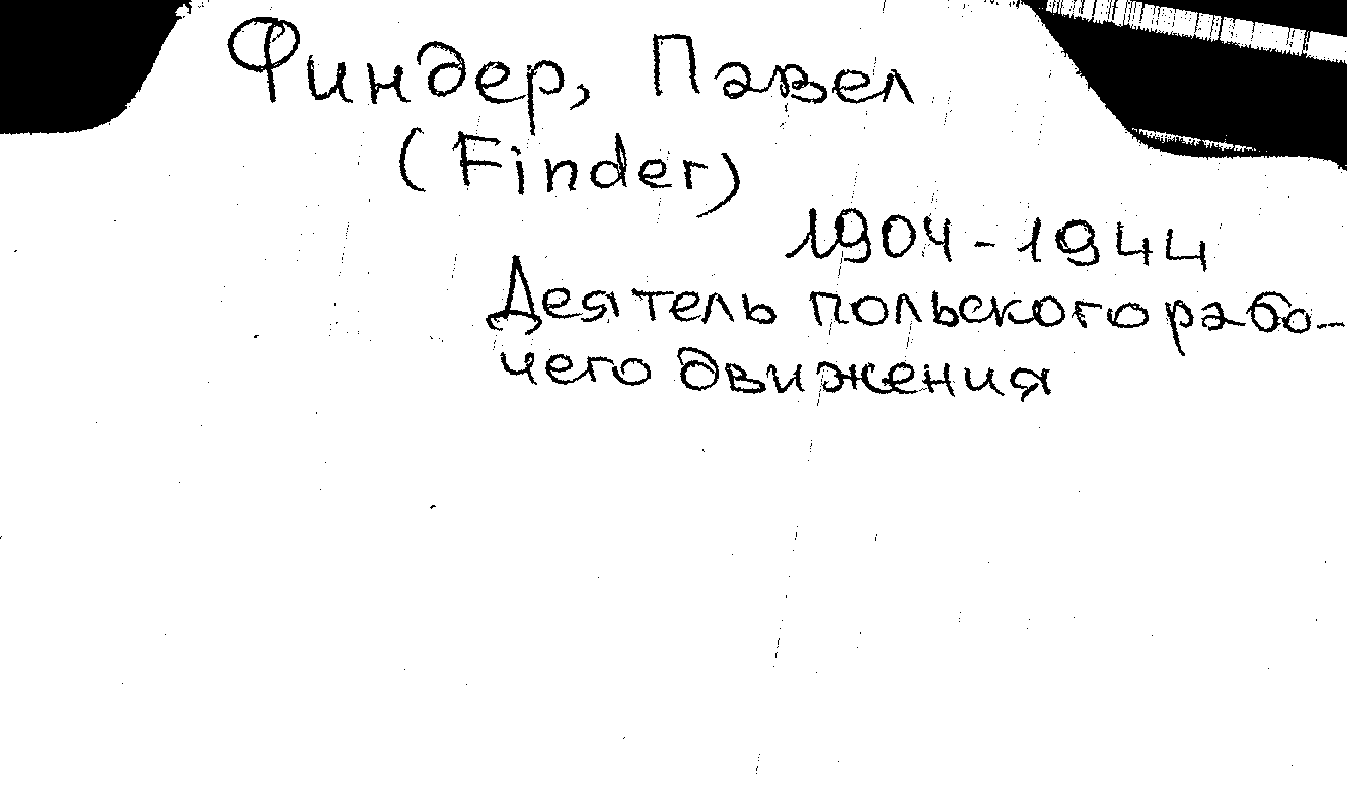 Финдер, Павел
(Finder)
1904-1944
Деятель польского рабо-
чего движения